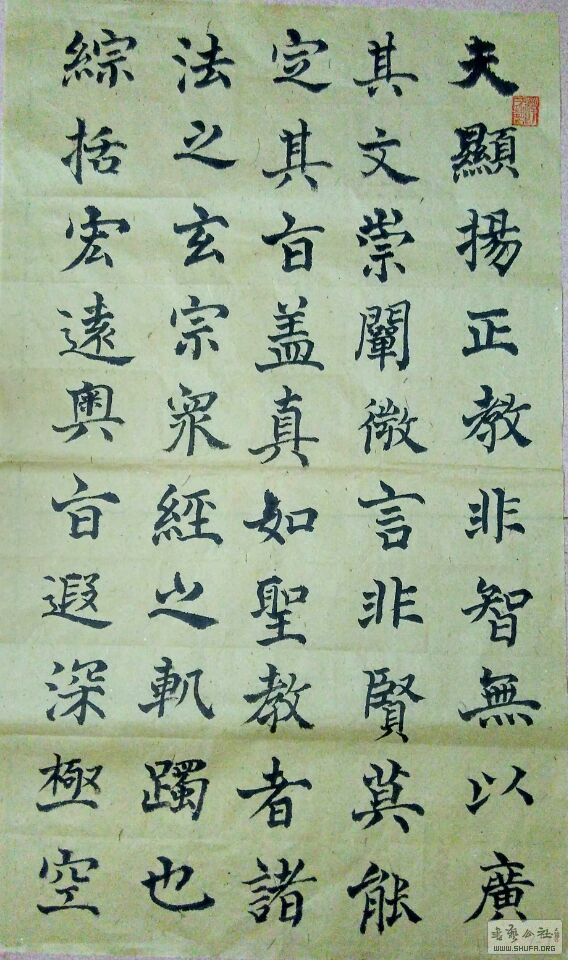 夫顯揚正教非智無以廣
其文崇闡微言非賢莫能
定其旨盖真如聖教者諸
法之玄宗衆經之軌躅也
綜括宏遠奥旨遐深極空
WWW.SHUFA.ORG